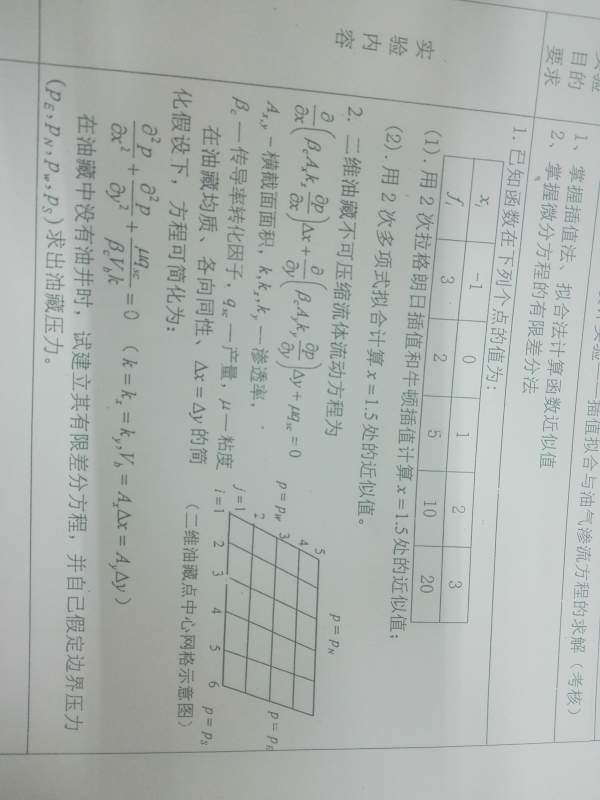 插值拟合与油气渗流方程的求解（考核）
实验
目的
要求
1、掌握插值法、拟合法计算函数近似值
2、掌握微分方程的有限差分法
实
验
内
容
1.已知函数在下列个点的值为：
xᵢ -1 0 1 2 3
fᵢ 3 2 5 10 20
(1).用 2 次拉格朗日插值和牛顿插值计算 x=1.5 处的近似值；
(2).用 2 次多项式拟合计算 x=1.5 处的近似值。
2. 二维油藏不可压缩流体流动方程为
∂/∂x(β_c A_x k_x ∂p/∂x)Δx+∂/∂y(β_c A_y k_y ∂p/∂y)Δy+μq_sc=0
A_x,y－横截面面积，k,k_x,k_y—渗透率，
β_c—传导率转化因子，q_sc—产量，μ—粘度
在油藏均质、各向同性、Δx=Δy 的简
化假设下，方程可简化为：
∂²p/∂x²+∂²p/∂y²+μq_sc/(β_c V_b k)=0 （k=k_x=k_y,V_b=A_xΔx=A_yΔy）
p=p_N
5
4
3
2
j=1
p=p_W
p=p_E
i=1 2 3 4 5 6
p=p_S
（二维油藏点中心网格示意图）
在油藏中没有油井时，试建立其有限差分方程，并自己假定边界压力
(p_E,p_N,p_w,p_S)求出油藏压力。